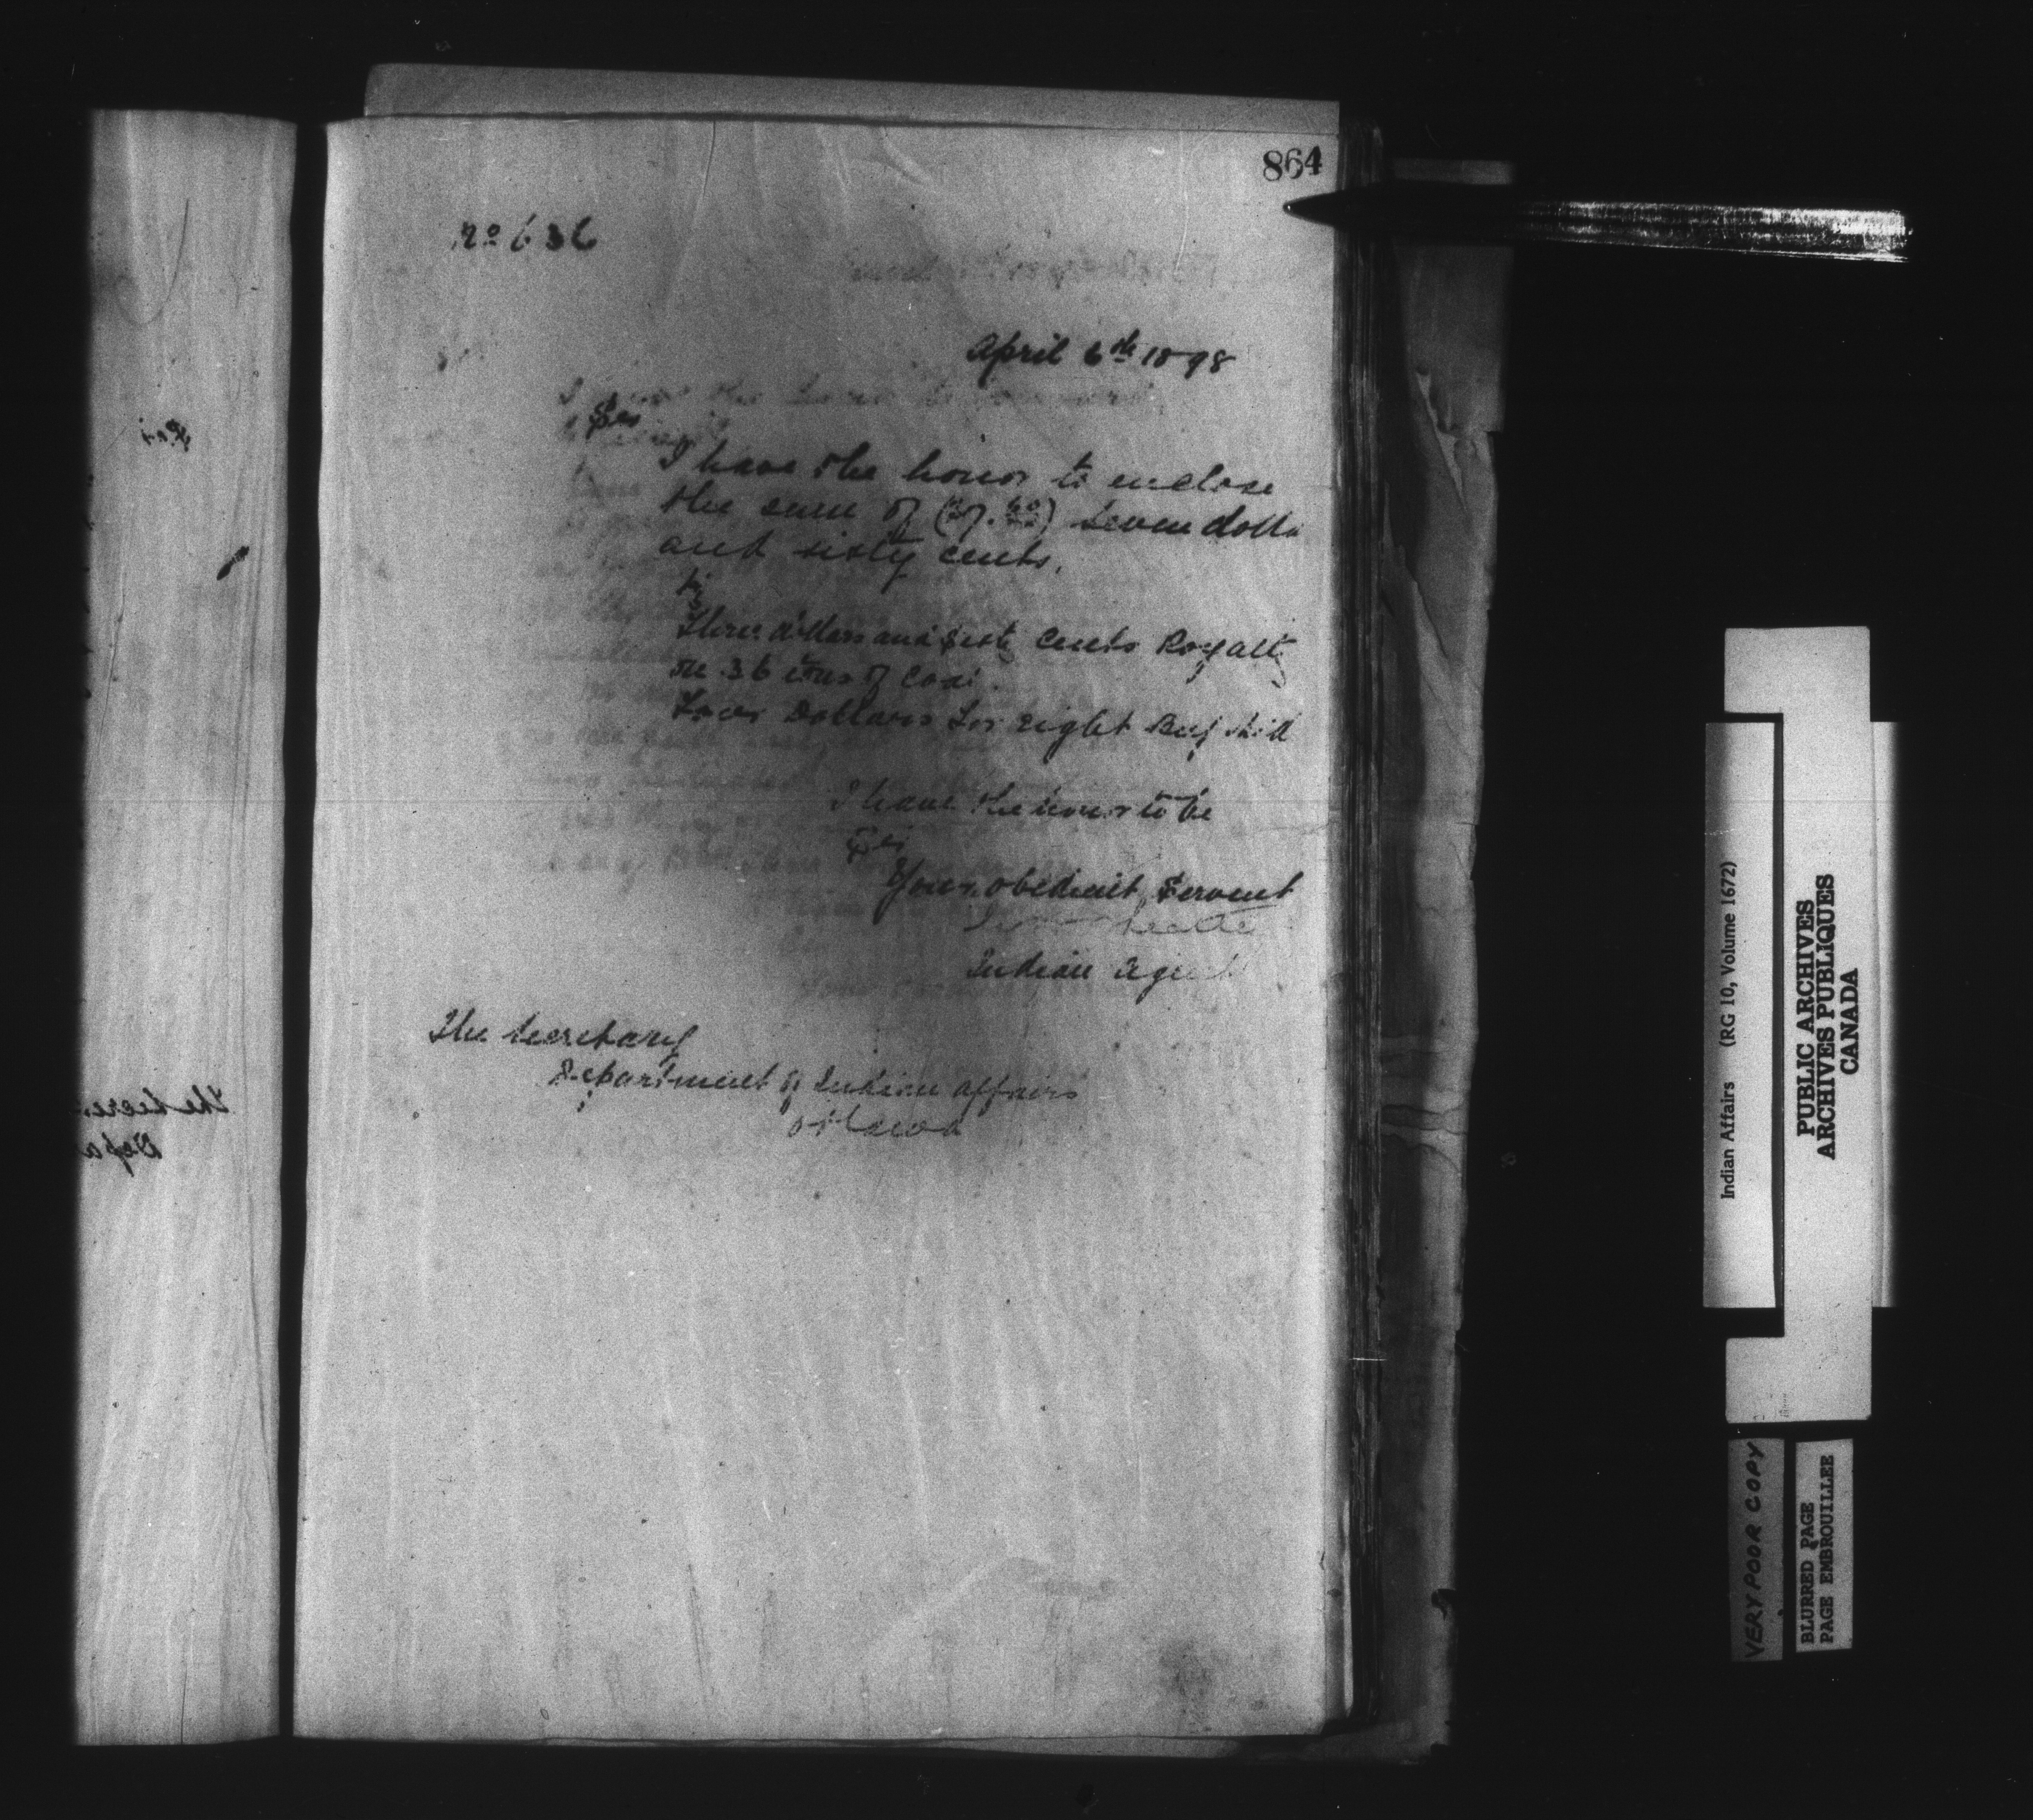 864
No 636
April 6th 1898
Sir
I have the honor to enclose
the sum of ($7.60) Seven dolla
and sixty cents,
Three dollars and sixty cents Royalty
on 36 tons of Coal.
Four Dollars for eight Beef hid
I have the honor to be
Sir
Your obedient Servent
Indian Agent
The Secretary
Department of Indian Affairs
Ottawa
The Secre
Depa
Indian Affairs (RG 10, Volume 1672)
PUBLIC ARCHIVES
ARCHIVES PUBLIQUES
CANADA
VERY POOR COPY
BLURRED PAGE
PAGE EMBROUILLEE